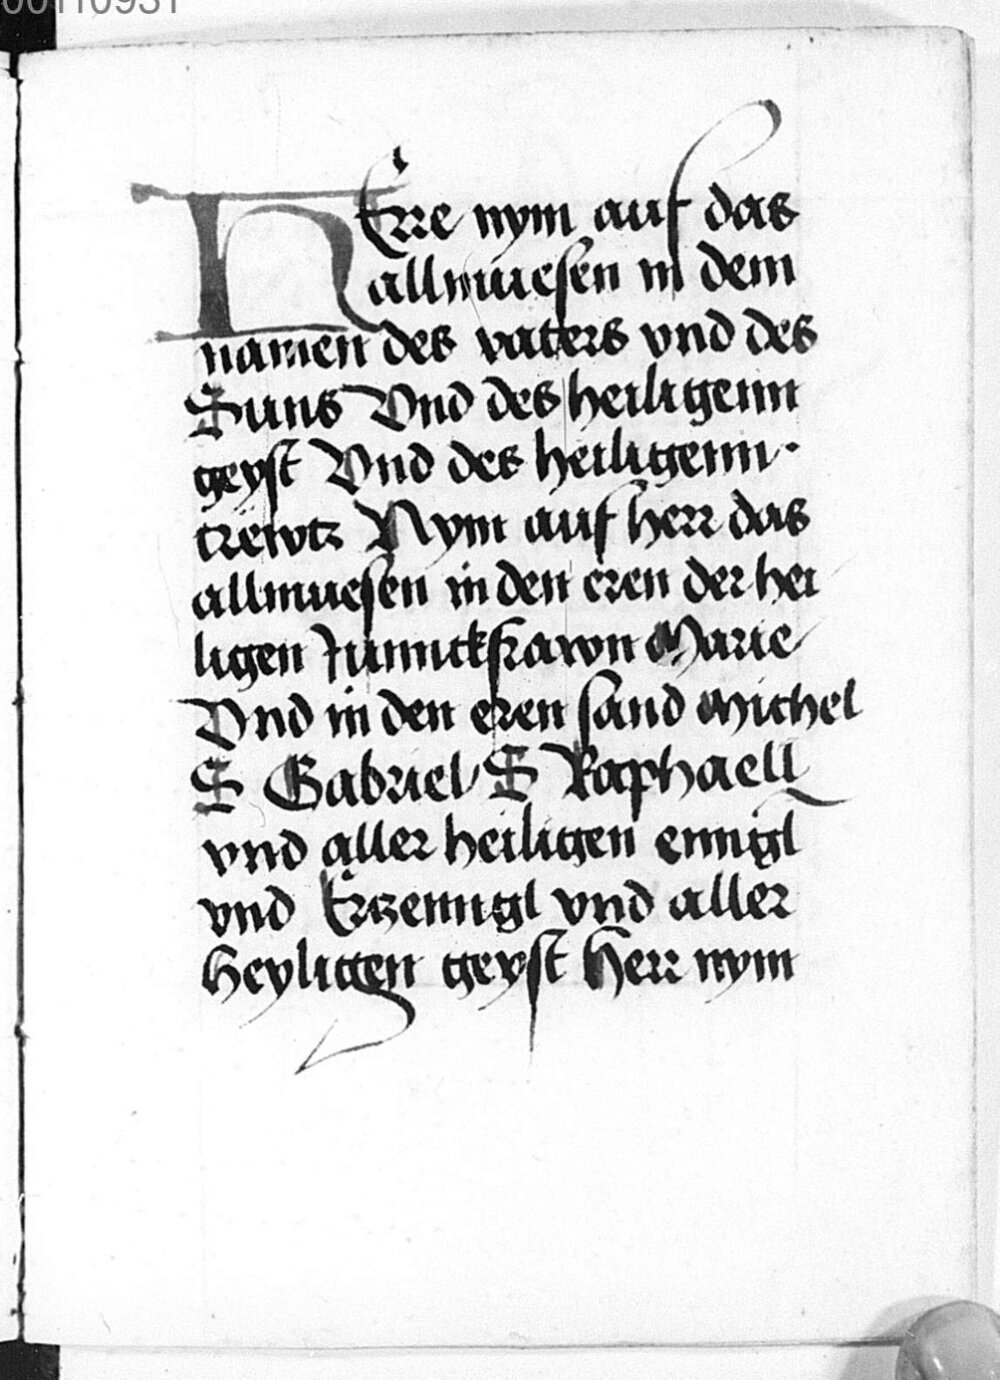 00110931
HErre nym auf das
allmuesen in dem
namen des vaters vnd des
Suns Vnd des heiligenn
geyst Vnd des heiligenn
crewtz Nym auf herr das
allmuesen in den eren der hei
ligen Junnckfrawn Marie
Vnd in den eren sand Michel
S Gabriel S Raphaell
vnd aller heiligen enngl
vnd Ertzenngl vnd aller
heyligen geyst herr nym